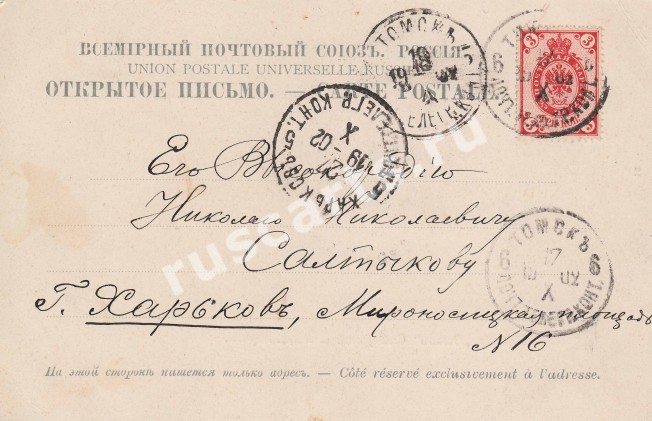 ВСЕМІРНЫЙ ПОЧТОВЫЙ СОЮЗЪ, РОССІЯ
UNION POSTALE UNIVERSELLE RUSSIE
ОТКРЫТОЕ ПИСЬМО. — CARTE POSTALE
ТОМСКЪ
18 X 02
3 3
3 3
ХАРЬКОВЪ
19 X 02
Его
Николаю Николаевичу
Салтыкову
г. Харьковъ, Мироносицкая площадь
N 16
ТОМСКЪ
6 6
17 X 02
На этой сторонѣ пишется только адресъ. — Côté réservé exclusivement à l'adresse.